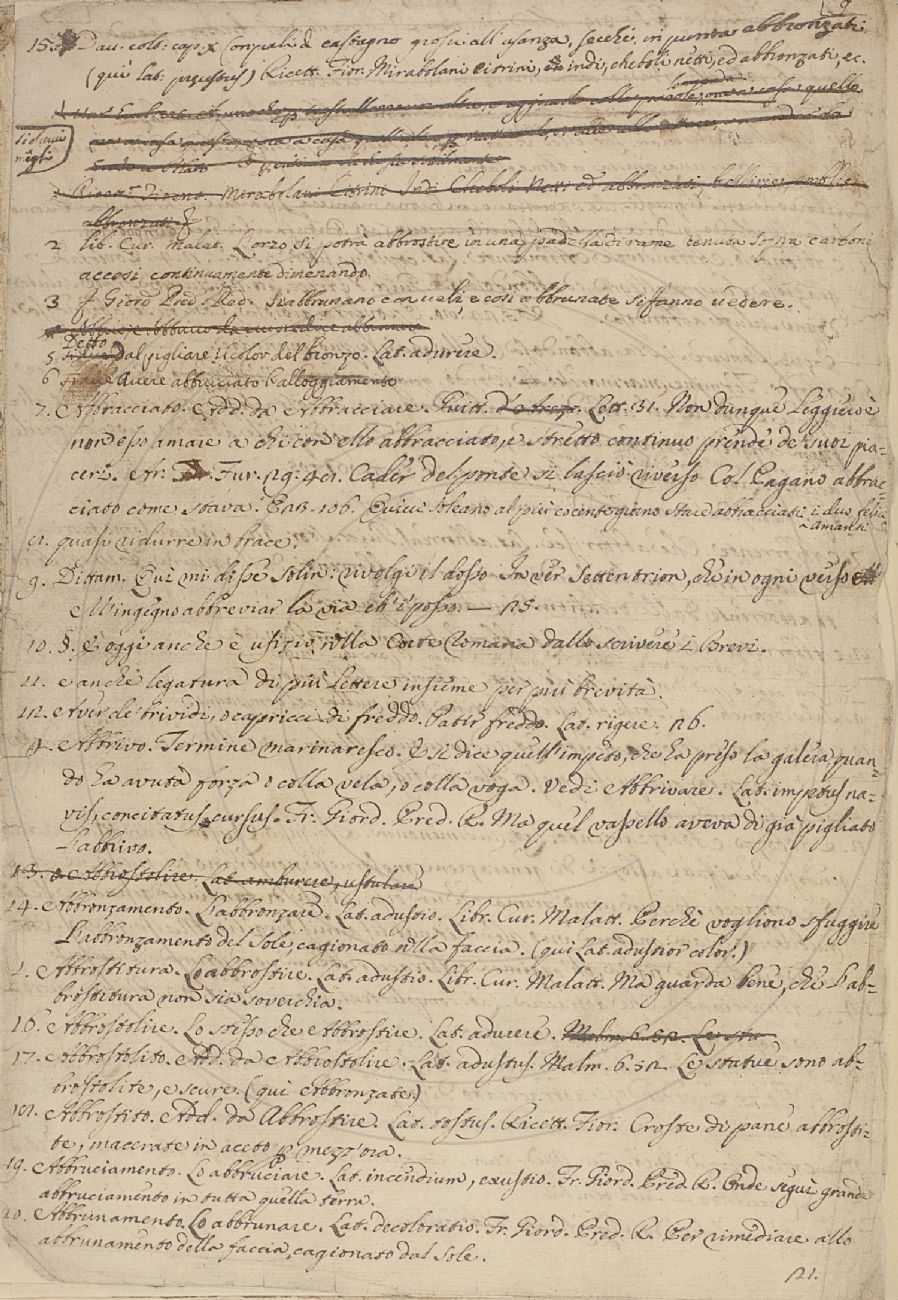 9
15. Dav. colt. cap. x Con pali di castagno grossi all'usanza, secchi, in punta abbronzati
(qui lat. praeustus) Ricett. Fior. Mirabolani citrini, indi, cheboli netti, ed abbronzati, ec.
Ricett. Fioren. Mirabolani Citrini Indi Chebuli Netti ed abbronzati, bellirici, emblici
abbronzati
2 lib. Cur. Malat. L'orzo si potrà abbrostire in una padella di rame tenuta sopra carboni
accesi, continuamente dimenando.
3 F. Giord. Pred. Red. Si abbrunano con veli, e così abbrunate si fanno vedere.
Detto
5. dal pigliare il color del bronzo. Lat. adurere.
6 Avere abbruciato l'alloggiamento
7. Abbracciato. Add. da Abbracciare. Guitt. Lett. 31. Non dunque leggiero è
non esso amare a chi con ello abbracciato, e stretto continuo prende de' suoi pia-
ceri. Ar. Fur. 29. 48. Cader del ponte si lasciò riverso Col Pagano abbrac-
ciato come stava. E 23. 106. Quivi soleano al più cocente giorno Stare abbracciati i due felici
amanti
8. quasi ridurre in brace.
9. Dittam. Qui mi disse Solin: rivolgi il dosso In ver settentrion, che in ogni verso
M'ingegno abbreviar la via ch'i' posso. — 25.
10. §. E oggi anche è ufizio nella Corte Romana dallo scrivere i Brevi.
11. e anche legatura di più lettere insieme per più brevità.
12. Aver de' brividi, o capricci di freddo. Patir freddo. Lat. rigere. 26.
4. Abbrivo. Termine marinaresco. E si dice quell'impeto, che ha preso la galera, quan-
do ha avuta forza o colla vela, o colla voga. Vedi Abbrivare. Lat. impetus na-
vis, concitatus cursus. Fr. Giord. Pred. R. Ma quel vassello aveva di già pigliato
l'abbrivo.
13. Abbrostolire. Lat. amburere, ustulare
14. Abbronzamento. L'abbronzare. Lat. adustio. Libr. Cur. Malatt. Perchè vogliono sfuggire
l'abbronzamento del Sole, cagionato nella faccia. (qui Lat. adustior color.)
Abbrostitura. Lo abbrostire. Lat. adustio. Libr. Cur. Malatt. Ma guarda bene, che l'ab-
brostitura non sia soverchia.
16. Abbrostolire. Lo stesso che Abbrostire. Lat. adurere. Malm. 6. 52. Le sta
17. Abbrostolito. Add. da Abbrostolire. Lat. adustus. Malm. 6. 52. Le statue sono ab-
brostolite, e scure. (qui Abbronzate.)
18. Abbrostito. Add. da Abbrostire. Lat. tostus. Ricett. Fior. Croste di pane abbrosti-
te, macerate in aceto p mezz'ora.
19. Abbruciamento. Lo abbruciare. Lat. incendium, exustio. Fr. Giord. Pred. R. Onde seguì grande
abbruciamento in tutta quella terra.
20. Abbrunamento. Lo abbrunare. Lat. decoloratio. Fr. Giord. Pred. R. Per rimediare allo
abbrunamento della faccia, cagionato dal Sole.
21.